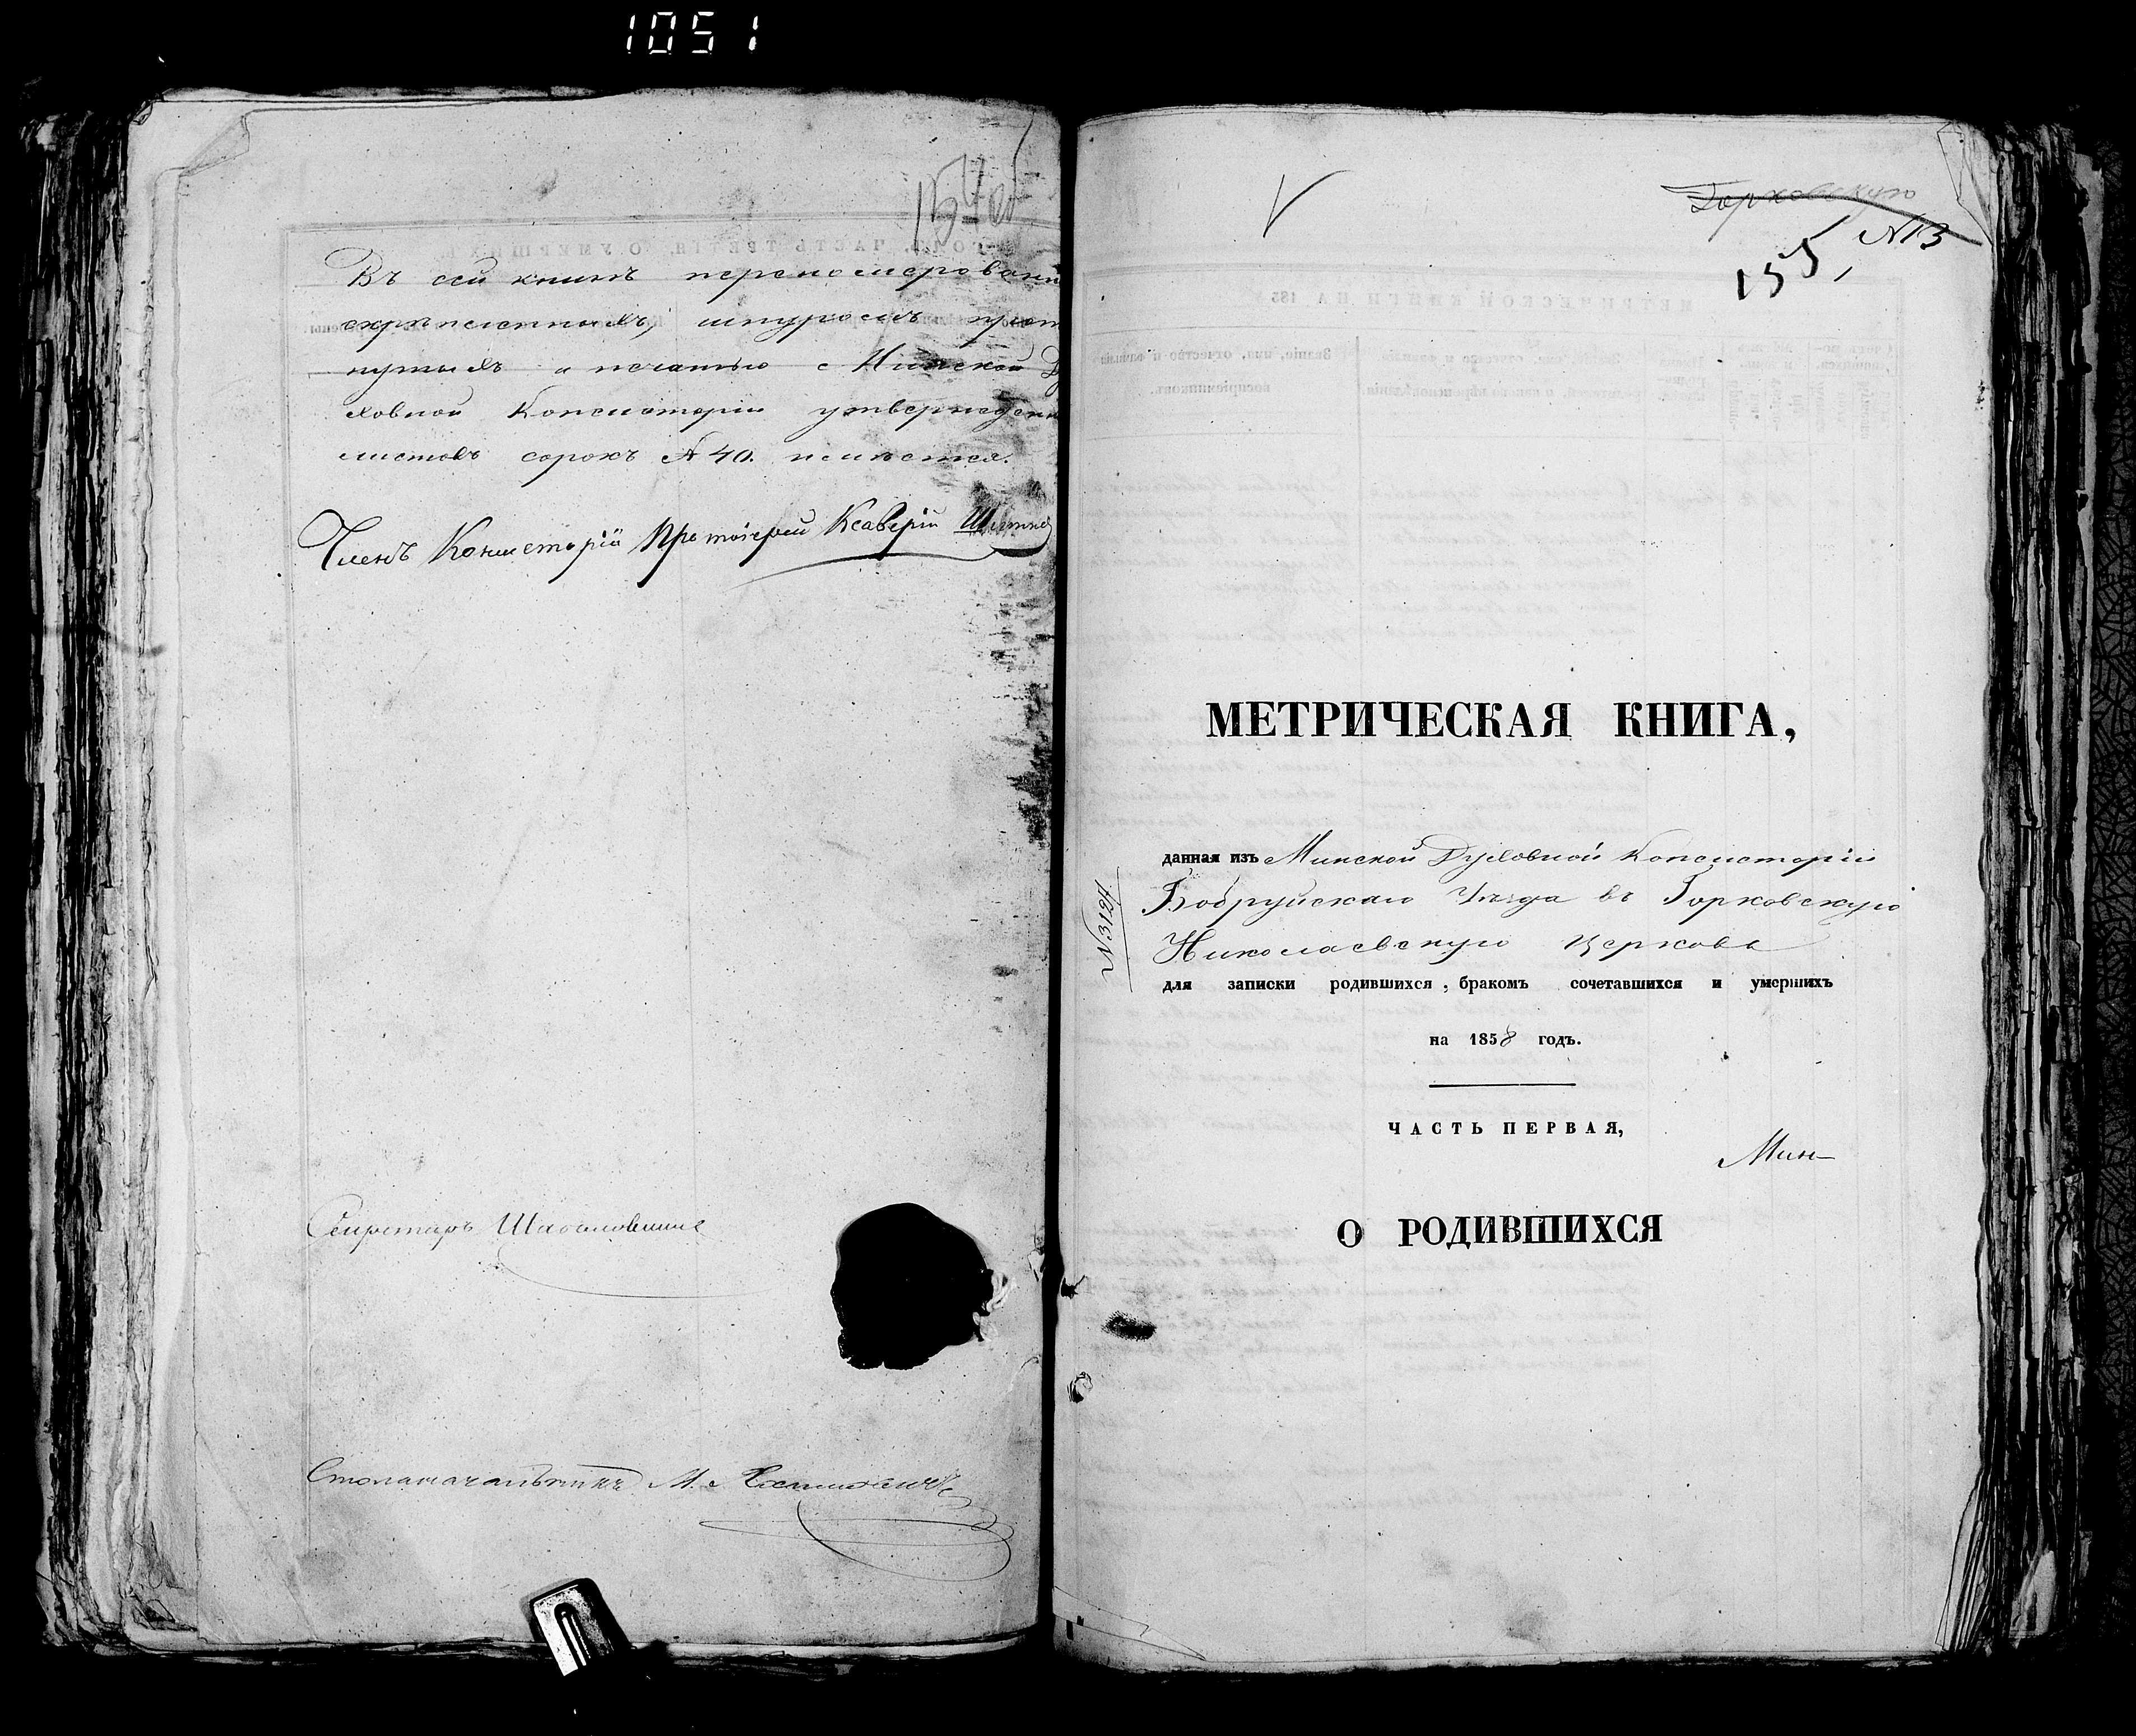 1051
154 об
Въ сей книгѣ перенумерованныхъ
скрѣпленныхъ, шнуромъ
и печатью с Минской Ду
ховной Консисторіи утвержден
листовъ сорокъ № 40. имѣется.
Членъ Консисторіи Протоіерей Ксаверій
Секретарь
Столоначальникъ М.
Горковскую
№13
155,
МЕТРИЧЕСКАЯ КНИГА,
данная изъ Минской Духовной Консисторіи
Бобруйскаго Уѣзда въ Горковскую
Николаевскую церковь
№3124
для записки родившихся, бракомъ сочетавшихся и умершихъ
на 1858 годъ.
ЧАСТЬ ПЕРВАЯ,
Мин-
О РОДИВШИХСЯ